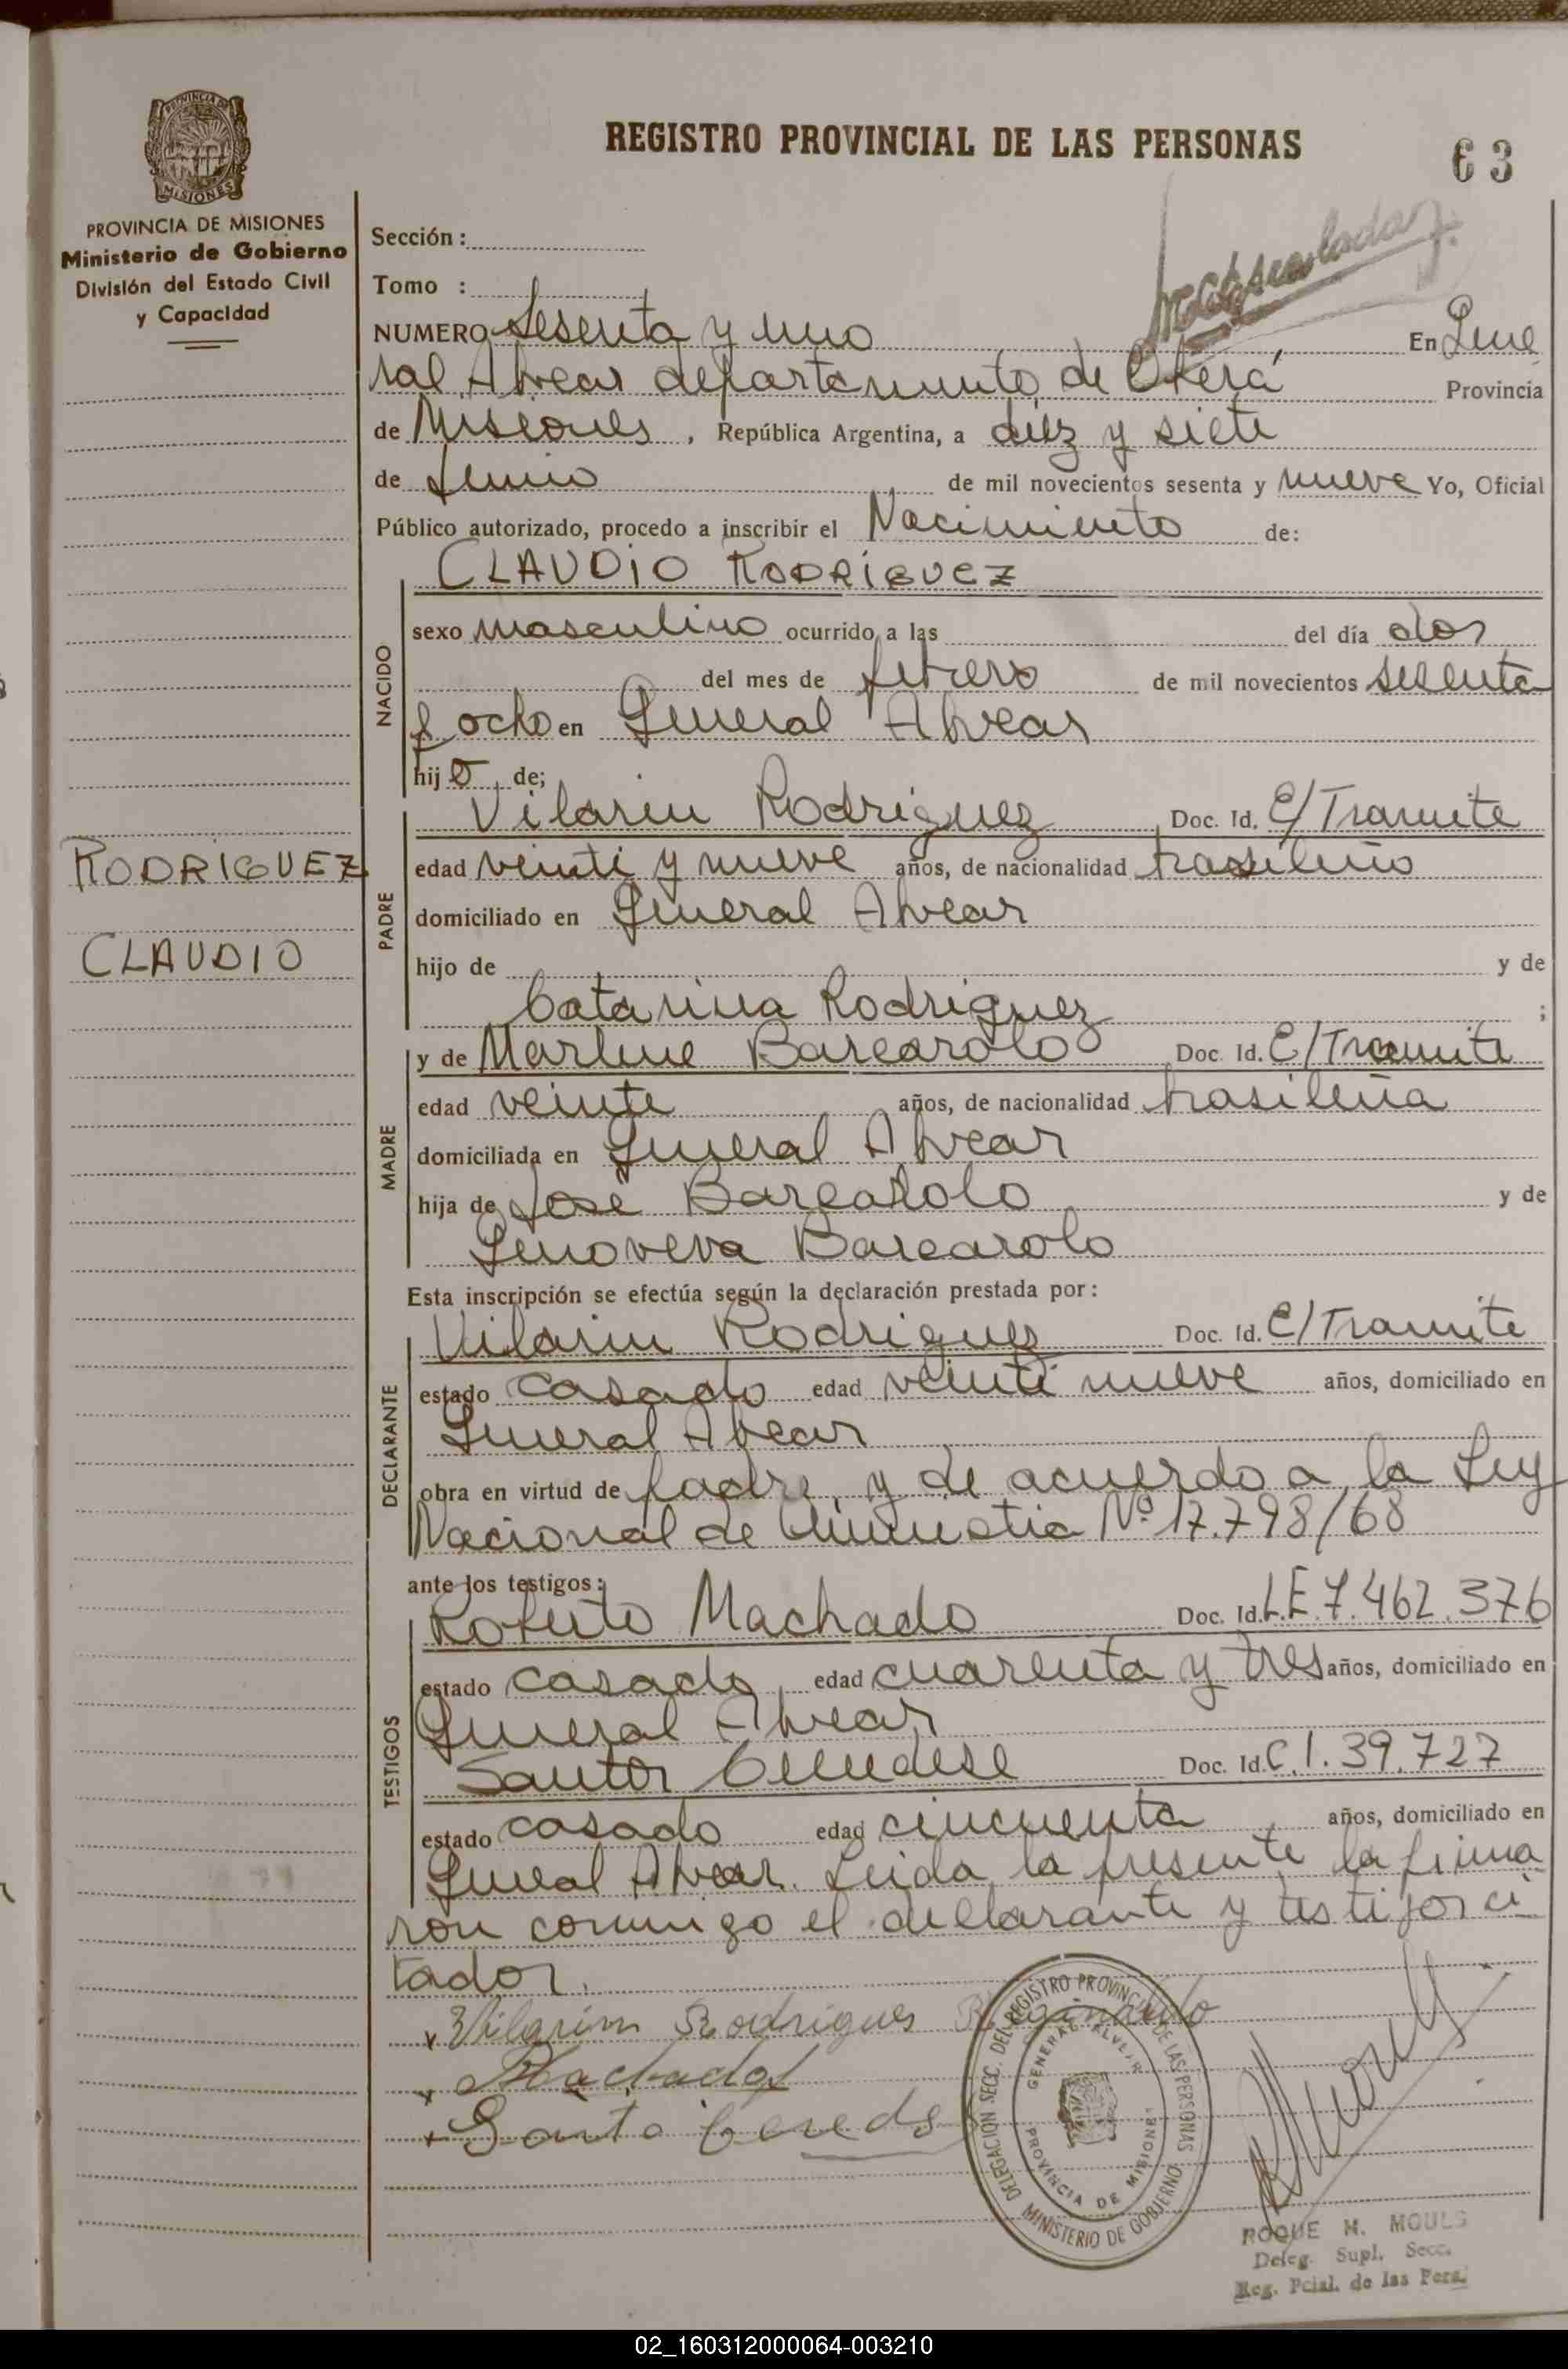 REGISTRO PROVINCIAL DE LAS PERSONAS
63
PROVINCIA DE MISIONES
PROVINCIA DE MISIONES
Ministerio de Gobierno
División del Estado Civil
y Capacidad
Sección :
Tomo :
NUMERO Sesenta y uno En Gene
ral Alvear departamento de Oberá Provincia
de Misiones , República Argentina, a diez y siete
de Junio de mil novecientos sesenta y nueve Yo, Oficial
Público autorizado, procedo a inscribir el Nacimiento de:
CLAUDIO RODRIGUEZ
NACIDO
sexo masculino ocurrido a las del día dos
del mes de febrero de mil novecientos sesenta
y ocho en General Alvear
hijo de;
RODRIGUEZ
CLAUDIO
PADRE
Vilarin Rodriguez Doc. Id. E/Tramite
edad veinti y nueve años, de nacionalidad brasileño
domiciliado en General Alvear
hijo de y de
Catarina Rodriguez ;
MADRE
y de Marlene Barcarolo Doc. Id. E/Tramite
edad veinte años, de nacionalidad brasileña
domiciliada en General Alvear
hija de José Barcarolo y de
Genoveva Barcarolo
Esta inscripción se efectúa según la declaración prestada por:
DECLARANTE
Vilarin Rodriguez Doc. Id. E/Tramite
estado casado edad veinti nueve años, domiciliado en
General Alvear
obra en virtud de padre y de acuerdo a la Ley
Nacional de Amnistia Nº 17.798/68
ante los testigos:
TESTIGOS
Roberto Machado Doc. Id. L.E. 7.462.376
estado casado edad cuarenta y tres años, domiciliado en
General Alvear
Santos Doc. Id. C.I. 39.727
estado casado edad cincuenta años, domiciliado en
General Alvear. Leida la presente la firma
ron conmigo el declarante y testigos ci
tados.
x Vilarim Rodrigues
x Machado
x Santo
DELEGACION SECC. DEL REGISTRO PROVINCIAL DE LAS PERSONAS
GENERAL ALVEAR
PROVINCIA DE MISIONES
MINISTERIO DE GOBIERNO
ROQUE M. MOULS
Deleg. Supl. Secc.
Reg. Pcial. de las Pers.
02_160312000064-003210